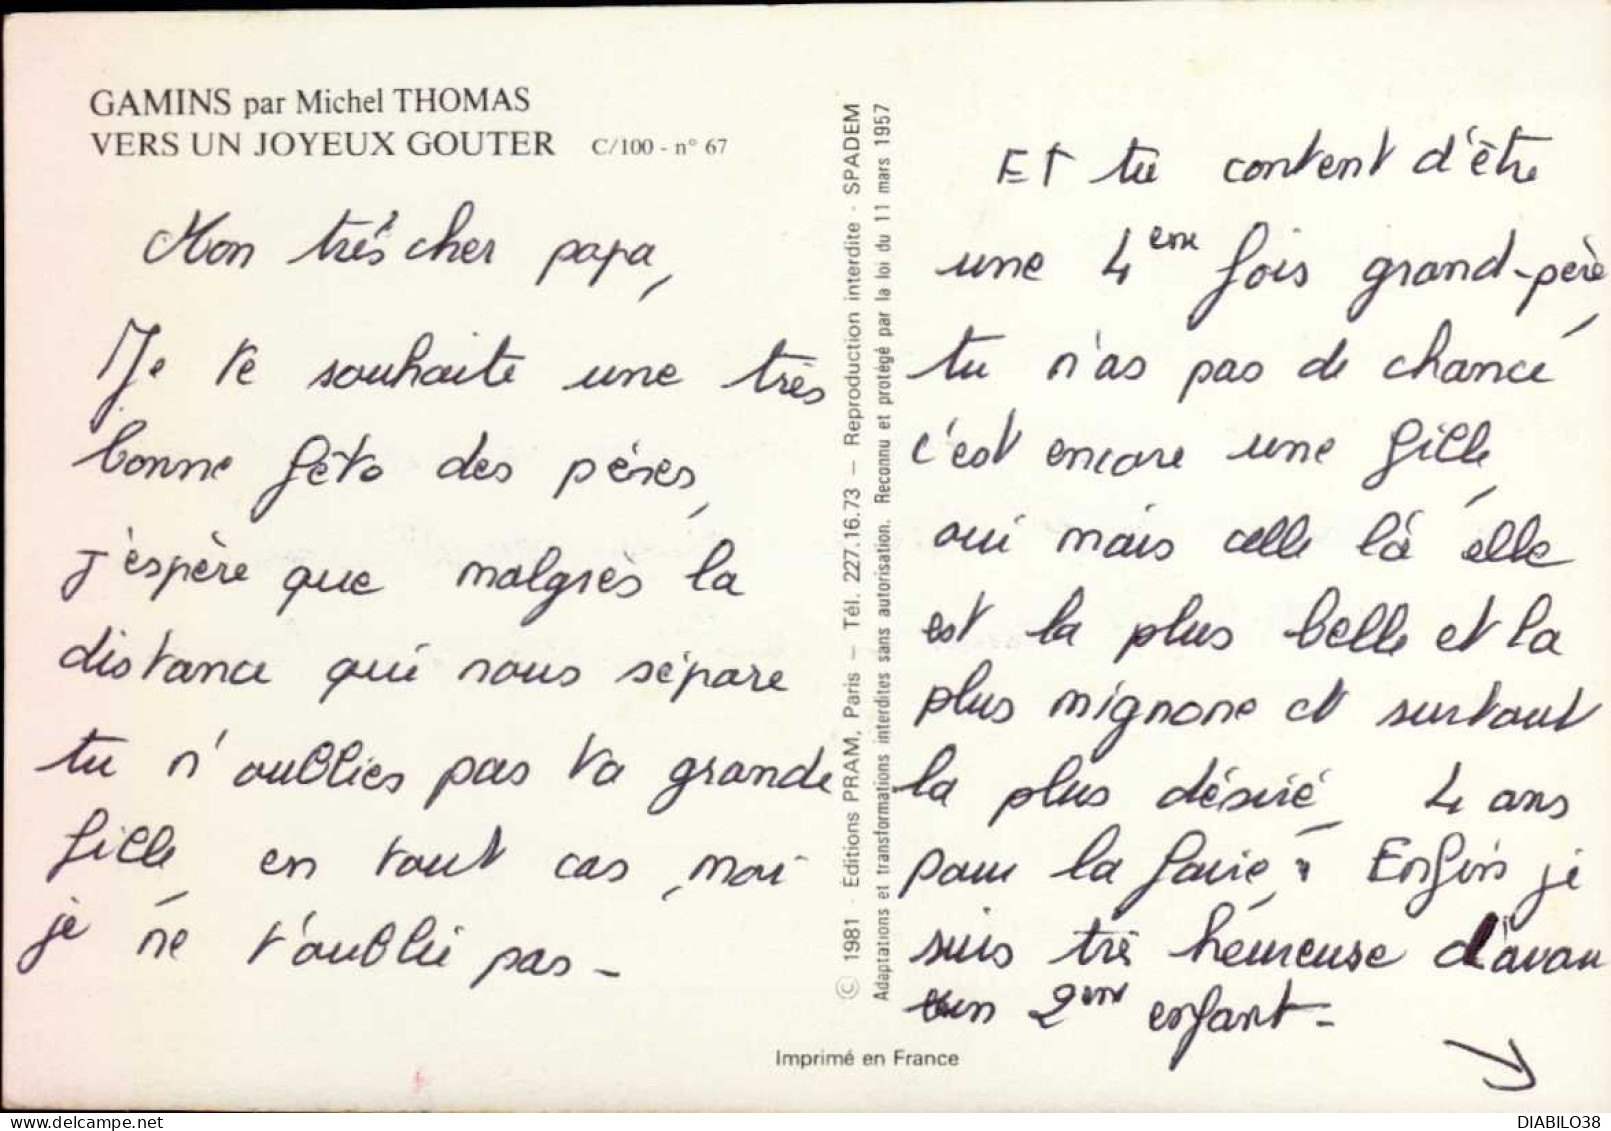 GAMINS par Michel THOMAS
VERS UN JOYEUX GOUTER C/100 - n° 67
Mon très cher papa,
Je te souhaite une très
bonne fête des pères,
j'espère que malgrès la
distance qui nous sépare
tu n'oublies pas ta grande
fille, en tout cas, moi
je ne t'oublie pas -
© 1981 - Editions PRAM, Paris - Tél. 227.16.73 - Reproduction interdite - SPADEM
Adaptations et transformations interdites sans autorisation. Reconnu et protégé par la loi du 11 mars 1957
Et tu content d'être
une 4eme fois grand-père,
tu n'as pas de chance
c'est encore une fille,
oui mais celle là elle
est la plus belle et la
plus mignone et surtout
la plus désiré, 4 ans
pour la faire, Enfin je
suis très heureuse d'avoir
un 2eme enfant -
Imprimé en France
DIABILO38